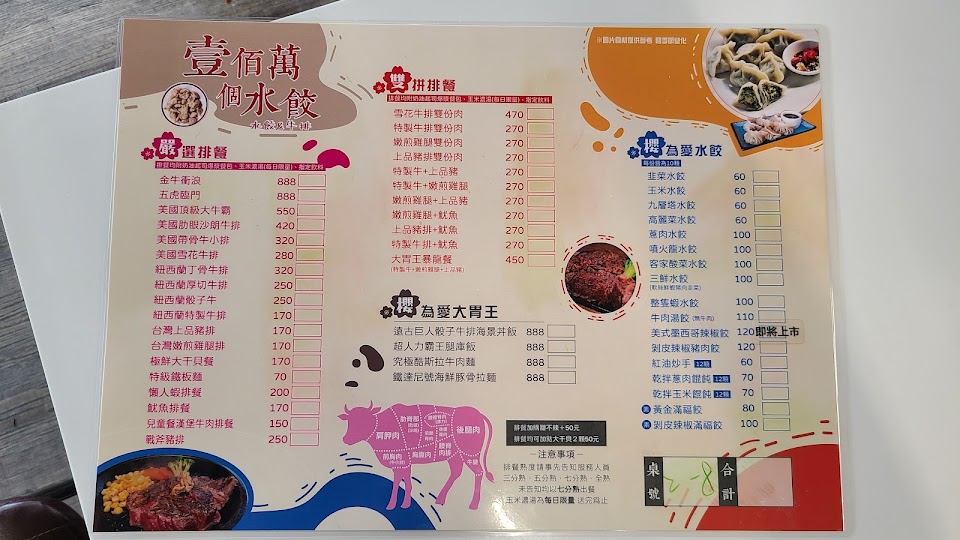 壹佰萬
個水餃
水餃&牛排
嚴選排餐
金牛衝浪 888
五虎臨門 888
美國頂級大牛霸 550
美國肋眼沙朗牛排 420
美國帶骨牛小排 320
美國雪花牛排 280
紐西蘭丁骨牛排 320
紐西蘭厚切牛排 250
紐西蘭骰子牛 250
紐西蘭特製牛排 170
台灣上品豬排 170
台灣嫩煎雞腿排 170
極鮮大干貝餐 170
特級鐵板麵 70
懶人蝦排餐 200
魷魚排餐 170
兒童餐漢堡牛肉排餐 150
戰斧豬排 250
雙拼排餐
排餐均附奶油起司爆漿餐包、玉米濃湯(每日限量)、指定飲料
雪花牛排雙份肉 470
特製牛排雙份肉 270
嫩煎雞腿雙份肉 270
上品豬排雙份肉 270
特製牛+上品豬 270
特製牛+嫩煎雞腿 270
嫩煎雞腿+上品豬 270
嫩煎雞腿+魷魚 270
上品豬排+魷魚 270
特製牛排+魷魚 270
大胃王暴龍餐 450
(特製牛+嫩煎雞腿+上品豬)
櫻為愛大胃王
遠古巨人骰子牛排海景丼飯 888
超人力霸王腿庫飯 888
究極酷斯拉牛肉麵 888
鐵達尼號海鮮豚骨拉麵 888
肩胛肉
後腿肉
前胸肉
胸腹肉
牛腱
排餐加購麵不辣+50元
排餐均可加點大干貝2顆50元
—注意事項—
排餐熟度請事先告知服務人員
三分熟、五分熟、七分熟、全熟
未告知均以七分熟出餐
玉米濃湯為每日限量 送完為止
櫻為愛水餃
每份皆為10顆
韭菜水餃 60
玉米水餃 60
九層塔水餃 60
高麗菜水餃 60
蔥肉水餃 100
噴火龍水餃 100
客家酸菜水餃 100
三鮮水餃 100
整隻蝦水餃 100
牛肉湯餃 (無牛肉) 110
美式墨西哥辣椒餃 120 即將上市
剝皮辣椒豬肉餃 120
紅油炒手 12顆 60
乾拌蔥肉餛飩 12顆 70
乾拌玉米餛飩 12顆 70
黃金滿福餃 80
剝皮辣椒滿福餃 100
桌號 2-8 合計